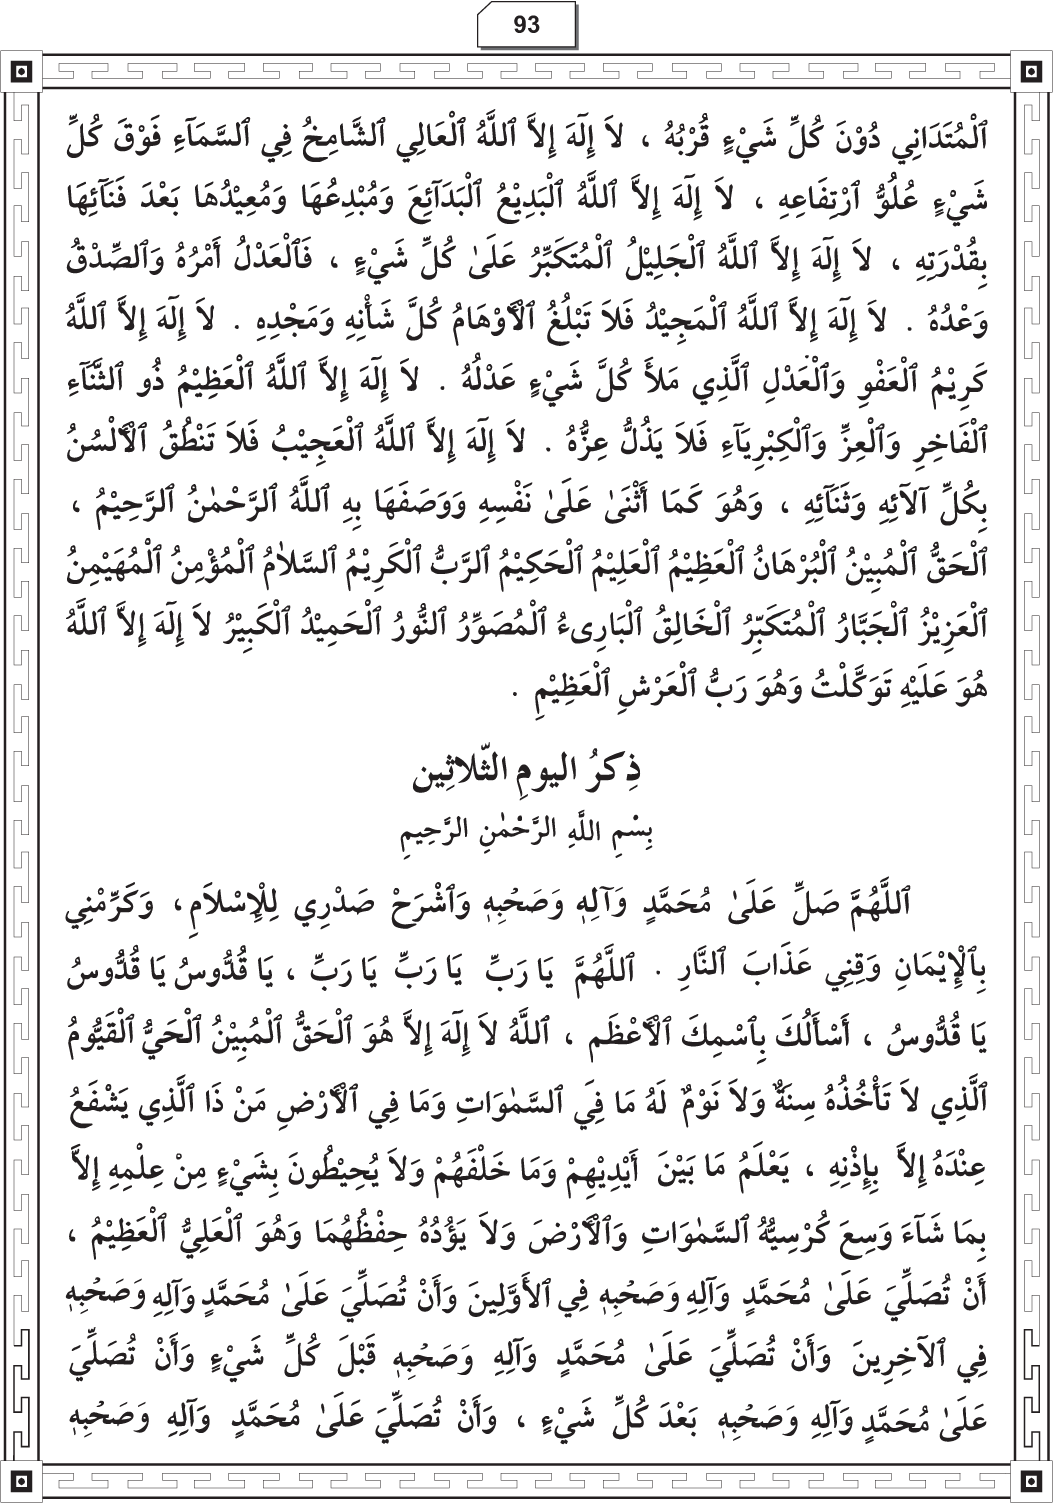 93
ٱلْمُتَدَانِي دُوْنَ كُلِّ شَيْءٍ قُرْبُهُ ، لاَ إِلَهَ إِلاَّ ٱللَّهُ ٱلْعَالِي ٱلشَّامِخُ فِي ٱلسَّمَآءِ فَوْقَ كُلِّ
شَيْءٍ عُلُوُّ ٱرْتِفَاعِهِ ، لاَ إِلَهَ إِلاَّ ٱللَّهُ ٱلْبَدِيْعُ ٱلْبَدَآئِعَ وَمُبْدِعُهَا وَمُعِيْدُهَا بَعْدَ فَنَآئِهَا
بِقُدْرَتِهِ ، لاَ إِلَهَ إِلاَّ ٱللَّهُ ٱلْجَلِيْلُ ٱلْمُتَكَبِّرُ عَلَىٰ كُلِّ شَيْءٍ ، فَٱلْعَدْلُ أَمْرُهُ وَٱلصِّدْقُ
وَعْدُهُ . لاَ إِلَهَ إِلاَّ ٱللَّهُ ٱلْمَجِيْدُ فَلاَ تَبْلُغُ ٱلْأَوْهَامُ كُلَّ شَأْنِهِ وَمَجْدِهِ . لاَ إِلَهَ إِلاَّ ٱللَّهُ
كَرِيْمُ ٱلْعَفْوِ وَٱلْعَدْلِ ٱلَّذِي مَلأَ كُلَّ شَيْءٍ عَدْلُهُ . لاَ إِلَهَ إِلاَّ ٱللَّهُ ٱلْعَظِيْمُ ذُو ٱلثَّنَآءِ
ٱلْفَاخِرِ وَٱلْعِزِّ وَٱلْكِبْرِيَآءِ فَلاَ يَذُلُّ عِزُّهُ . لاَ إِلَهَ إِلاَّ ٱللَّهُ ٱلْعَجِيْبُ فَلاَ تَنْطُقُ ٱلْأَلْسُنُ
بِكُلِّ آلآئِهِ وَثَنَآئِهِ ، وَهُوَ كَمَا أَثْنَىٰ عَلَىٰ نَفْسِهِ وَوَصَفَهَا بِهِ ٱللَّهُ ٱلرَّحْمٰنُ ٱلرَّحِيْمُ ،
ٱلْحَقُّ ٱلْمُبِيْنُ ٱلْبُرْهَانُ ٱلْعَظِيْمُ ٱلْعَلِيْمُ ٱلْحَكِيْمُ ٱلرَّبُّ ٱلْكَرِيْمُ ٱلسَّلاٰمُ ٱلْمُؤْمِنُ ٱلْمُهَيْمِنُ
ٱلْعَزِيْزُ ٱلْجَبَّارُ ٱلْمُتَكَبِّرُ ٱلْخَالِقُ ٱلْبَارِىءُ ٱلْمُصَوِّرُ ٱلنُّورُ ٱلْحَمِيْدُ ٱلْكَبِيْرُ لاَ إِلَهَ إِلاَّ ٱللَّهُ
هُوَ عَلَيْهِ تَوَكَّلْتُ وَهُوَ رَبُّ ٱلْعَرْشِ ٱلْعَظِيْمِ .
ذِكرُ اليومِ الثّلاثِين
بِسْمِ اللَّهِ الرَّحْمٰنِ الرَّحِيمِ
ٱللَّهُمَّ صَلِّ عَلَىٰ مُحَمَّدٍ وَآلِهِ وَصَحْبِهِ وَٱشْرَحْ صَدْرِي لِلْإِسْلاَمِ ، وَكَرِّمْنِي
بِٱلْإِيْمَانِ وَقِنِي عَذَابَ ٱلنَّارِ . ٱللَّهُمَّ يَا رَبِّ يَا رَبِّ يَا رَبِّ ، يَا قُدُّوسُ يَا قُدُّوسُ
يَا قُدُّوسُ ، أَسْأَلُكَ بِٱسْمِكَ ٱلْأَعْظَمِ ، ٱللَّهُ لاَ إِلَهَ إِلاَّ هُوَ ٱلْحَقُّ ٱلْمُبِيْنُ ٱلْحَيُّ ٱلْقَيُّومُ
ٱلَّذِي لاَ تَأْخُذُهُ سِنَةٌ وَلاَ نَوْمٌ لَهُ مَا فِيَ ٱلسَّمٰوَاتِ وَمَا فِي ٱلْأَرْضِ مَنْ ذَا ٱلَّذِي يَشْفَعُ
عِنْدَهُ إِلاَّ بِإِذْنِهِ ، يَعْلَمُ مَا بَيْنَ أَيْدِيْهِمْ وَمَا خَلْفَهُمْ وَلاَ يُحِيْطُونَ بِشَيْءٍ مِنْ عِلْمِهِ إِلاَّ
بِمَا شَآءَ وَسِعَ كُرْسِيُّهُ ٱلسَّمٰوَاتِ وَٱلْأَرْضَ وَلاَ يَؤُدُهُ حِفْظُهُمَا وَهُوَ ٱلْعَلِيُّ ٱلْعَظِيْمُ ،
أَنْ تُصَلِّيَ عَلَىٰ مُحَمَّدٍ وَآلِهِ وَصَحْبِهِ فِي ٱلأَوَّلِينَ وَأَنْ تُصَلِّيَ عَلَىٰ مُحَمَّدٍ وَآلِهِ وَصَحْبِهِ
فِي ٱلآخِرِينَ وَأَنْ تُصَلِّيَ عَلَىٰ مُحَمَّدٍ وَآلِهِ وَصَحْبِهِ قَبْلَ كُلِّ شَيْءٍ وَأَنْ تُصَلِّيَ
عَلَىٰ مُحَمَّدٍ وَآلِهِ وَصَحْبِهِ بَعْدَ كُلِّ شَيْءٍ ، وَأَنْ تُصَلِّيَ عَلَىٰ مُحَمَّدٍ وَآلِهِ وَصَحْبِهِ